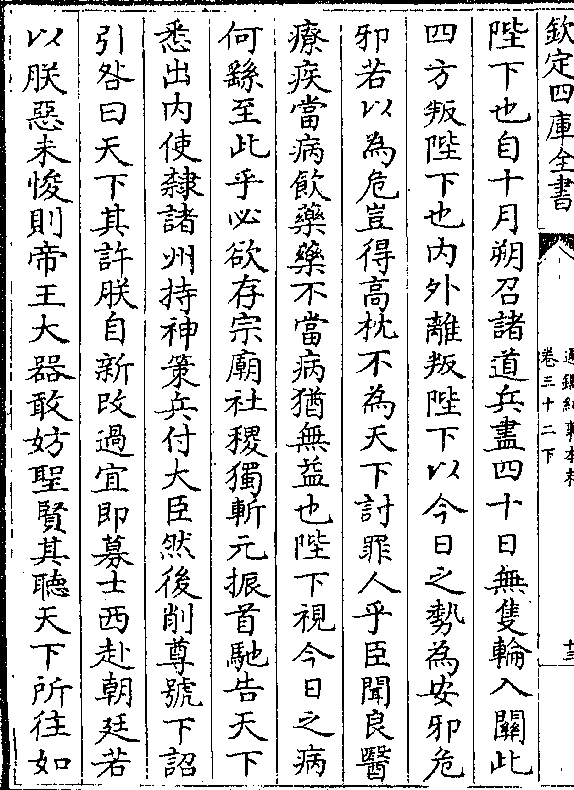 欽定四庫全書
通鑑紀事本末
卷三十二下
十三
陛下也自十月朔召諸道兵盡四十日無隻輪入關此
四方叛陛下也内外離叛陛下以今日之勢為安邪危
邪若以為危豈得高枕不為天下討罪人乎臣聞良醫
療疾當病飲藥藥不當病猶無益也陛下視今日之病
何繇至此乎必欲存宗廟社稷獨斬元振首馳告天下
悉出内使隸諸州持神策兵付大臣然後削尊號下詔
引咎曰天下其許朕自新改過宜即募士西赴朝廷若
以朕惡未悛則帝王大器敢妨聖賢其聽天下所往如